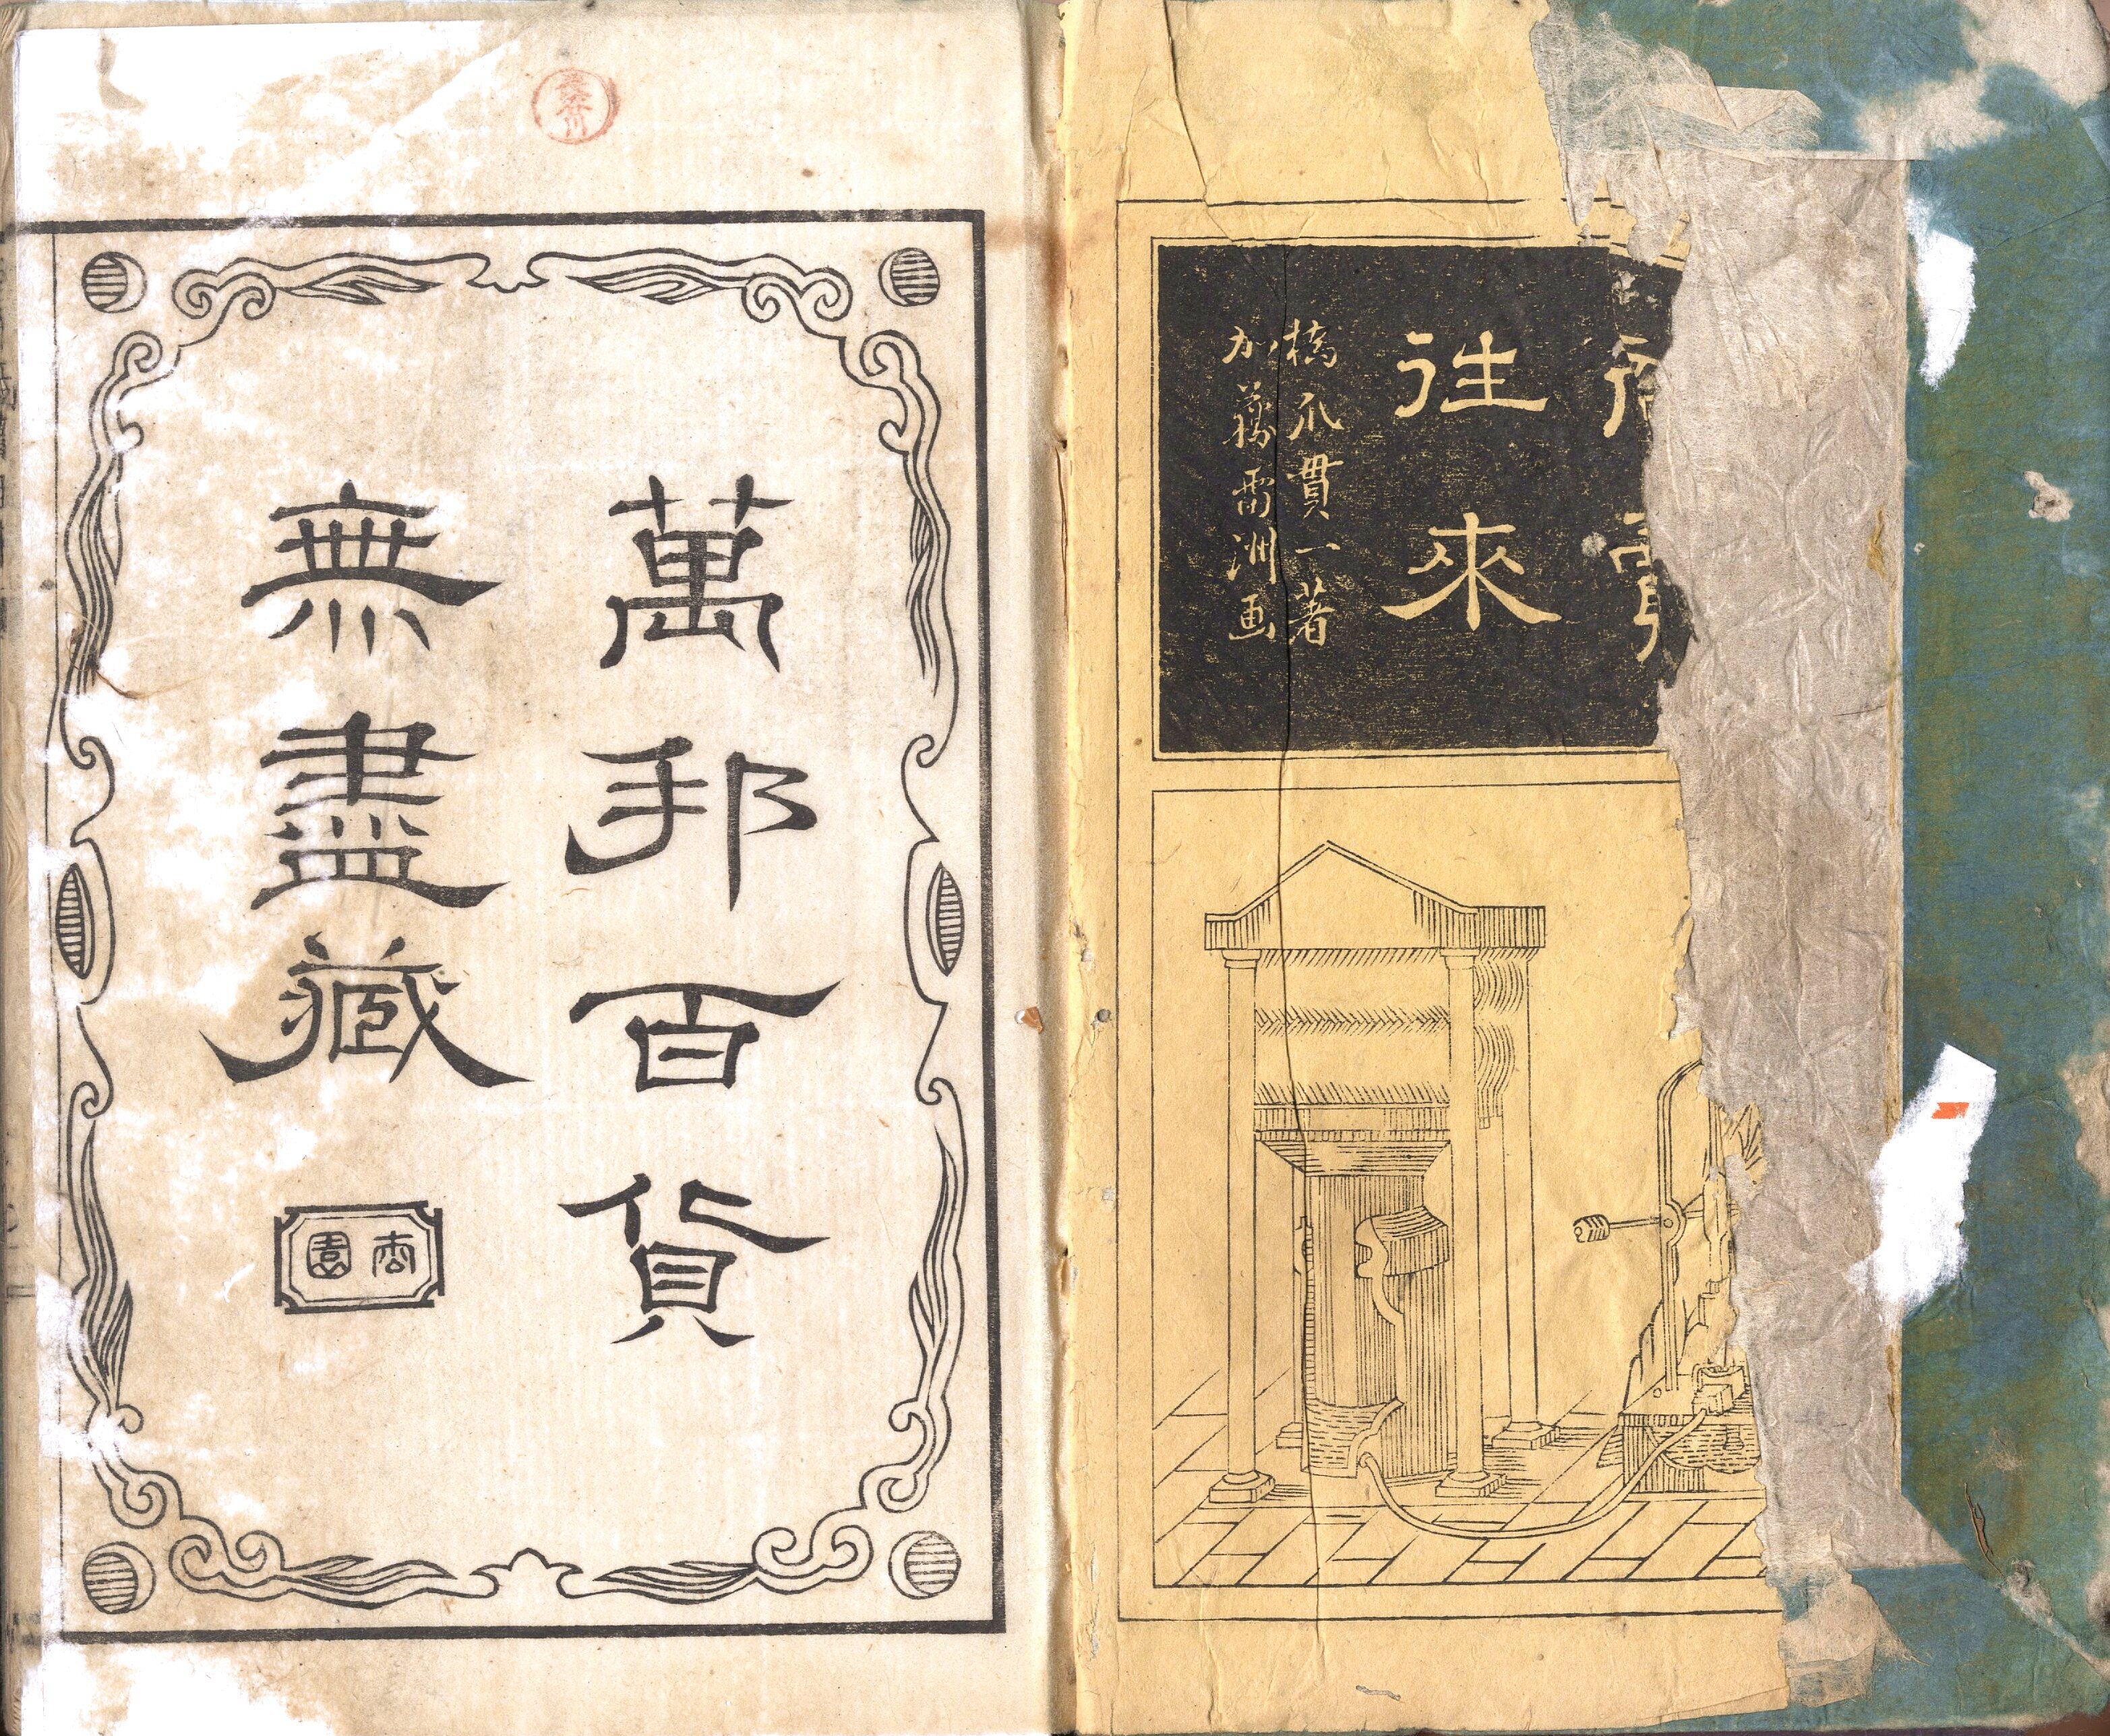 徃來
橋爪貫一著
加藤雷洲画
萬邦百貨
無盡藏
杏園